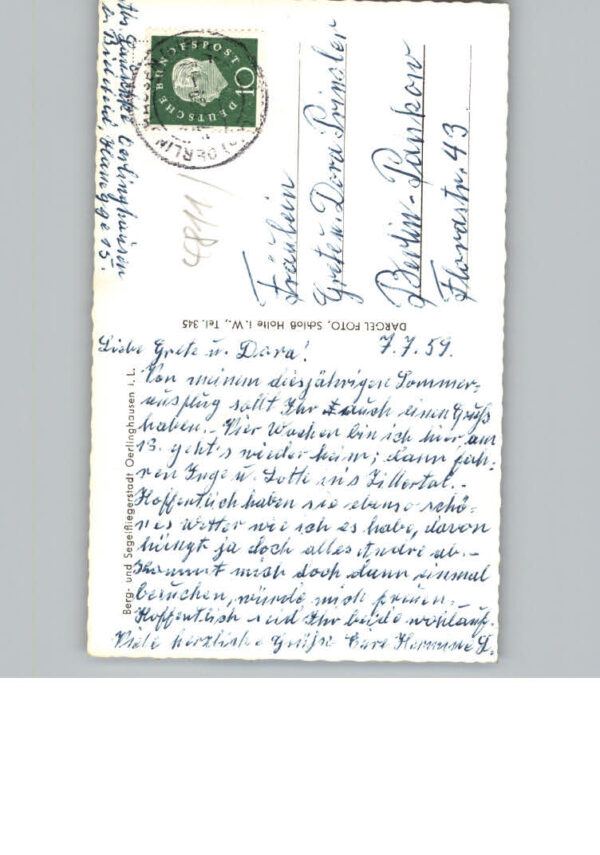 Liebe Grete u. Dora! 7.7.59.
Von meinem diesjährigen Sommer=
ausflug sollt Ihr auch einen Gruß
haben. - Vier Wochen bin ich hier, am
13. geht's wieder heim; dann fah=
ren Inge u. Lotte ins Zillertal. -
Hoffentlich haben sie ebenso schö=
nes Wetter wie ich es habe, davon
hängt ja doch alles Andre ab. -
Kommt mich doch dann einmal
besuchen, würde mich freuen. -
Hoffentlich seid Ihr beide wohlauf.
Viele herzliche Grüße Eure Hermine L.
Fräulein
Grete u. Dora Prinsler
Berlin-Pankow
Florastr. 43
Oerlinghausen
DEUTSCHE BUNDESPOST
10
OERLINGHAUSEN
4811/
DARGEL FOTO, Schloß Holte i. W., Tel. 345
Berg- und Segelfliegerstadt Oerlinghausen i. L.